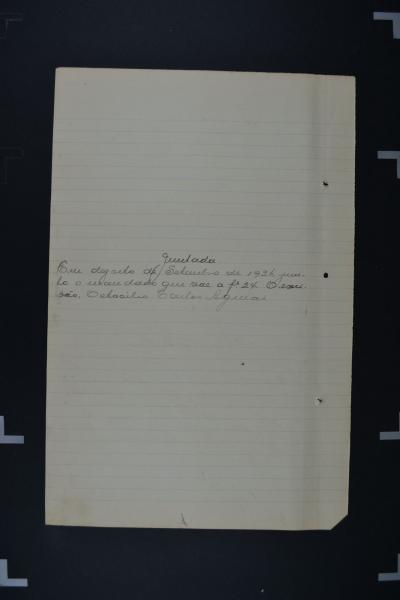 Juntada
Em dezoito de Setembro de 1926 jun-
to o mandado que vae a fs 24. O escri-
vão, Octacilio Carlos Aguiar